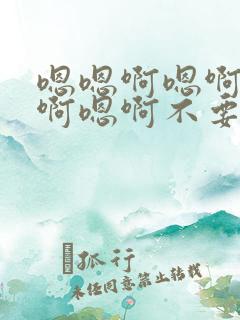 嗯嗯啊嗯啊
啊嗯啊不要
孤行
未经同意禁止转载